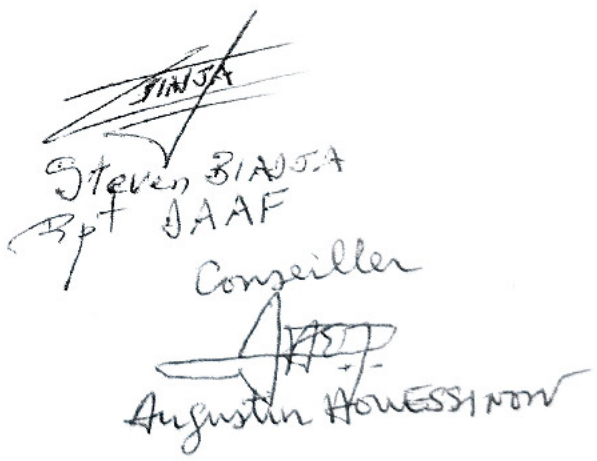 BINJA
Steven BINJA
Rpt DAAF
Conseiller
Augustin HOUESSINON